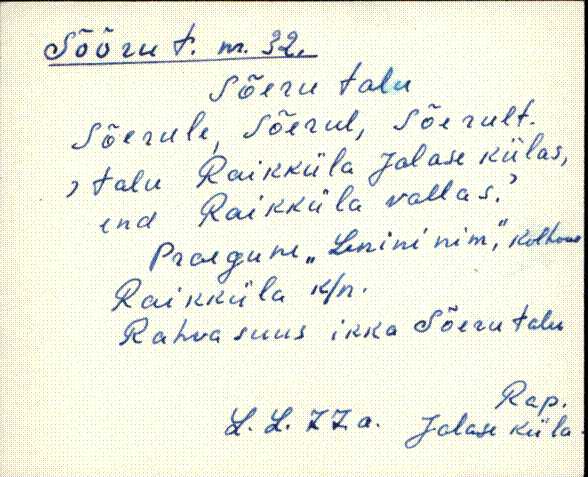 Sõõru t. nr. 32.
Sõeru talu
Sõerule, Sõerul, Sõerult.
, talu Raikküla Jalase külas,
end Raikküla vallas.'
Praegune „Lenini nim." kolhoos
Raikküla k/n.
Rahva suus ikka Sõeru talu
Rap.
L. L. 77.a. Jalase küla.